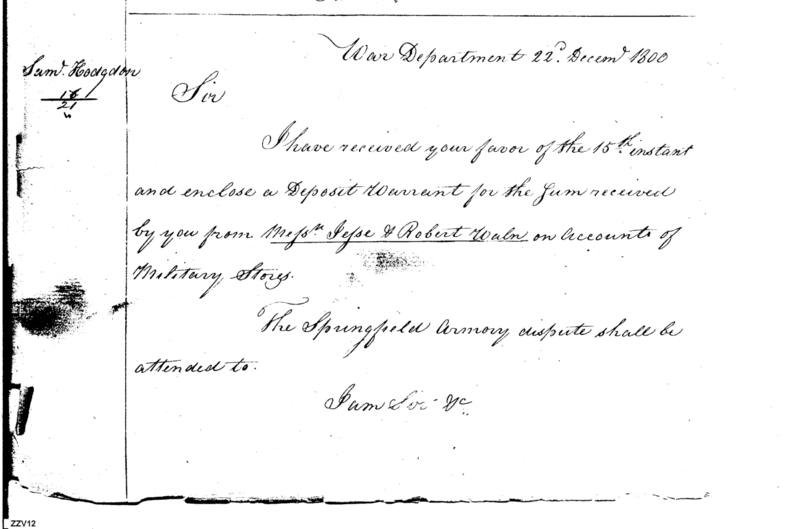 War Department 22d. Decemr 1800
Saml. Hodgdon
Sir
I have received your favor of the 15th. instant
and enclose a Deposit Warrant for the Sum received
by you from Messrs Jesse & Robert Waln on Accounts of
Military Stores.
The Springfield Armory dispute shall be
attended to.
I am Sir &c
ZZV12